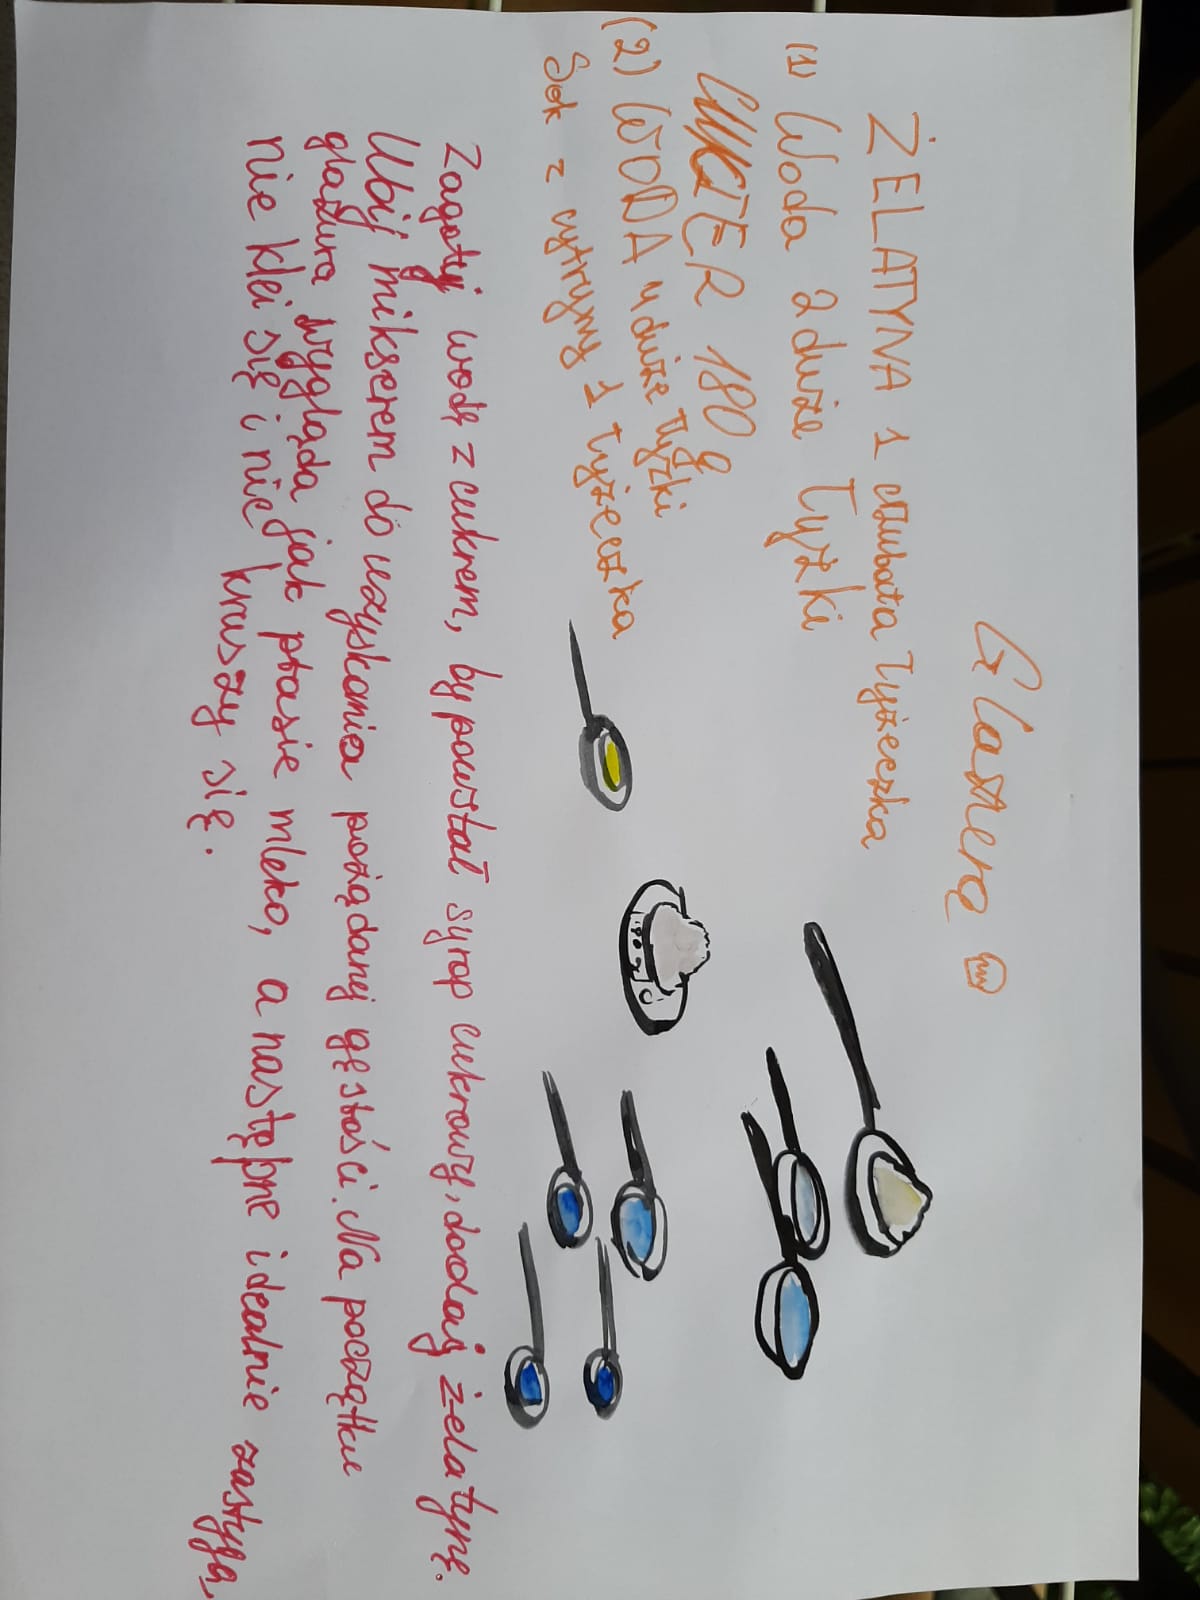 Glazerę
ŻELATYNA 1 czubata łyżeczka
(1) Woda 2 duże łyżki
CUKIER 180 g
(2) WODA 4 duże łyżki
Sok z cytryny 1 łyżeczka
Zagotuj wodę z cukrem, by powstał syrop cukrowy, dodaj żelatynę.
Ubij mikserem do uzyskania pożądanej gęstości. Na początku
glazura wygląda jak ptasie mleko, a następne idealnie zastyga,
nie klei się i nie kruszy się.